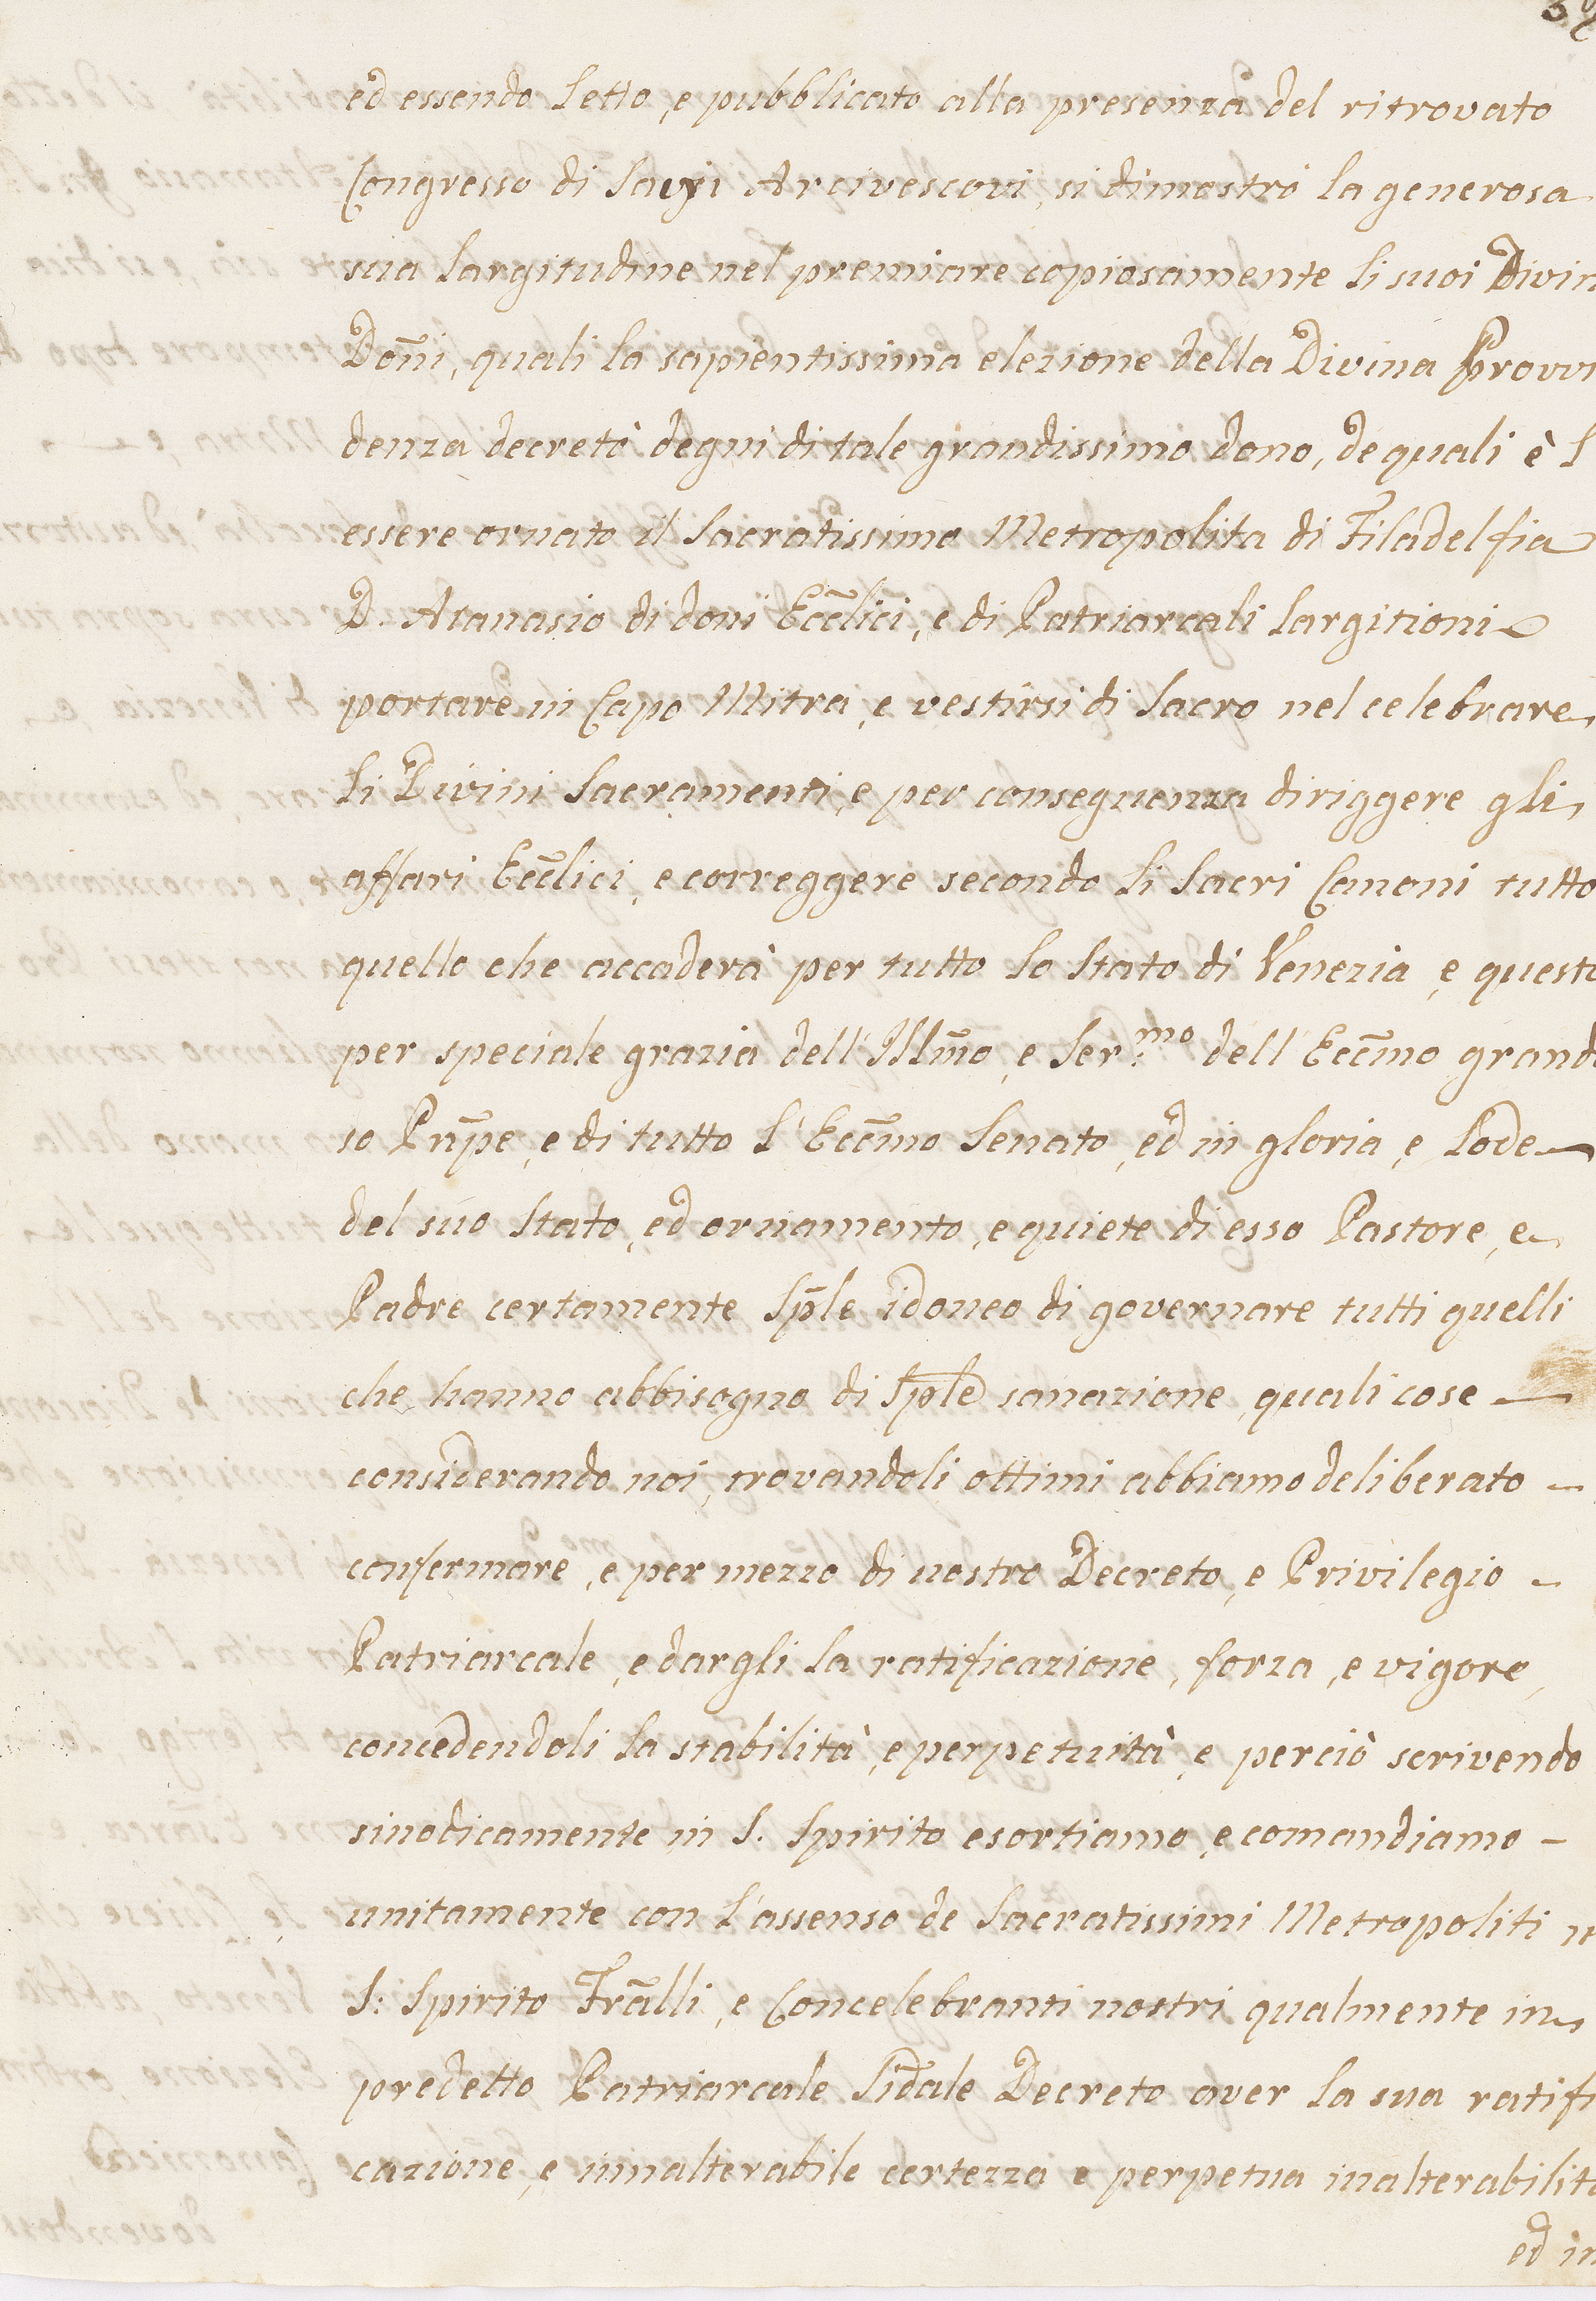 ed essendo Letto, e pubblicato alla presenza del ritrovato
Congresso di Savj Arcivescovi, si dimostrò la generosa
sua Largitudine nel premiare copiosamente li suoi Divin
Doñi, quali la sapientissima elezione della Divina Provvi
denza decretò degni di tale grandissimo dono, de quali è l
essere ornato il Sacratissimo Metropolita di Filadelfia
D. Atanasio di doni Ecc̃lici, e di Patriarcali Largitioni
portare in Capo Mitra, e vestirsi di Sacro nel celebrare
li Divini Sacramenti, e per conseguenza diriggere gli
affari Ecc̃lici, e correggere secondo li Sacri Canoni tutto
quello che accaderà per tutto lo Stato di Venezia, e questo
per speciale grazia dell' Illm̃o, e Ser.mo dell' Ecc̃mo grand
so Pñpe, e di tutto l'Ecc̃mo Senato, ed in gloria, e Lode
del suo Stato, ed ornamento, e quiete di esso Pastore, e
Padre certamente Sp̃le idoneo di governare tutti quelli
che hanno abbisogno di Sp̃le sanazione, quali cose
considerando noi, trovandoli ottimi abbiamo deliberato
confermare, e per mezzo di nostro Decreto, e Privilegio
Patriarcale, e dargli la ratificazione, forza, e vigore,
concedendoli la stabilità, e perpetuità, e perciò scrivendo
sinodicamente in S. Spirito esortiamo, e comandiamo
unitamente con l'assenso de Sacratissimi Metropoliti n
S: Spirito Frãlli, e Concelebranti nostri qualmente in
predetto Patriarcale Sid̃ale Decreto aver la sua ratifi
cazione, e innalterabile certezza e perpetua inalterabilita
ed in